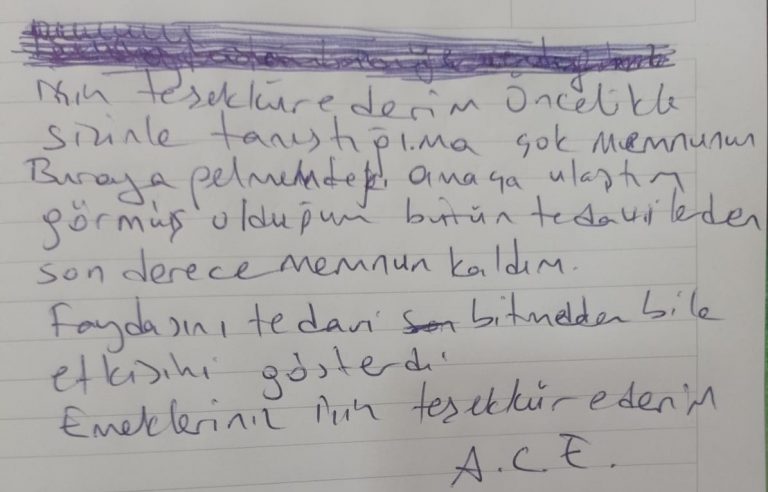 için teşekküre derim öncelikle
sizinle tanıştığıma çok memnunum
Buraya gelmemdeki amaca ulaştım
görmüş olduğum bütün tedavileden
son derece memnun kaldım.
Faydasını tedavi son bitmedden bile
etkisini gösterdi
Emekleriniz için teşekkür ederim
A.C.E.